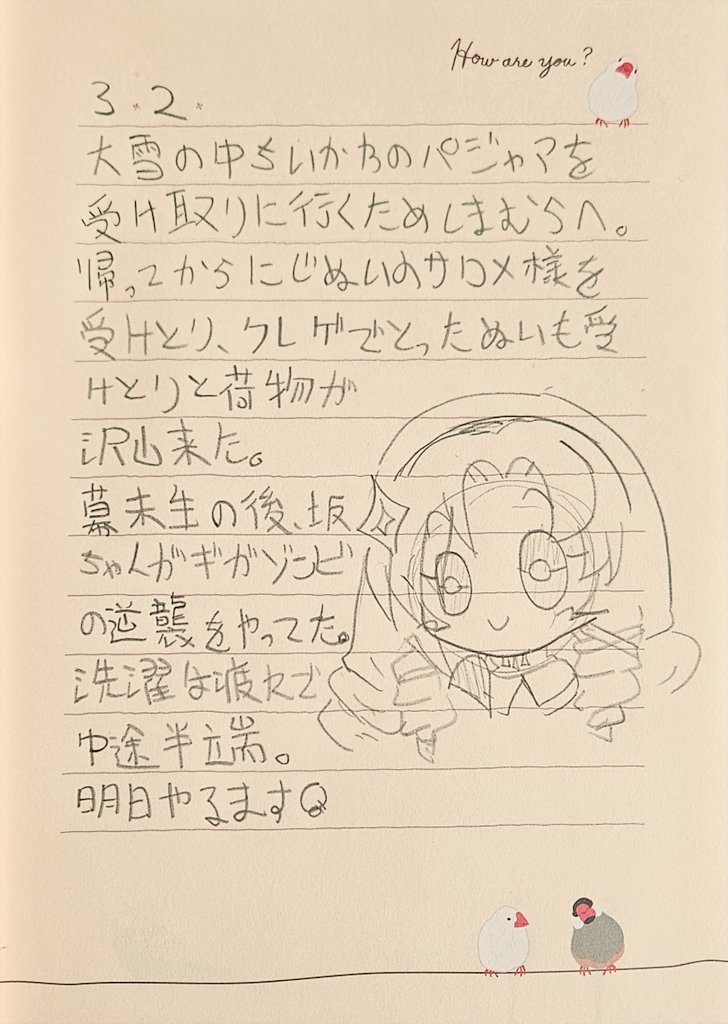 How are you?
3.2.
大雪の中ちいかわのパジャマを
受け取りに行くためしまむらへ。
帰ってからにじぬいのサロメ様を
受けとり、クレゲでとったぬいも受
けとりと荷物が
沢山来た。
幕末生の後、坂
ちゃんがギガゾンビ
の逆襲をやってた。
洗濯は疲れで
中途半端。
明日やるます